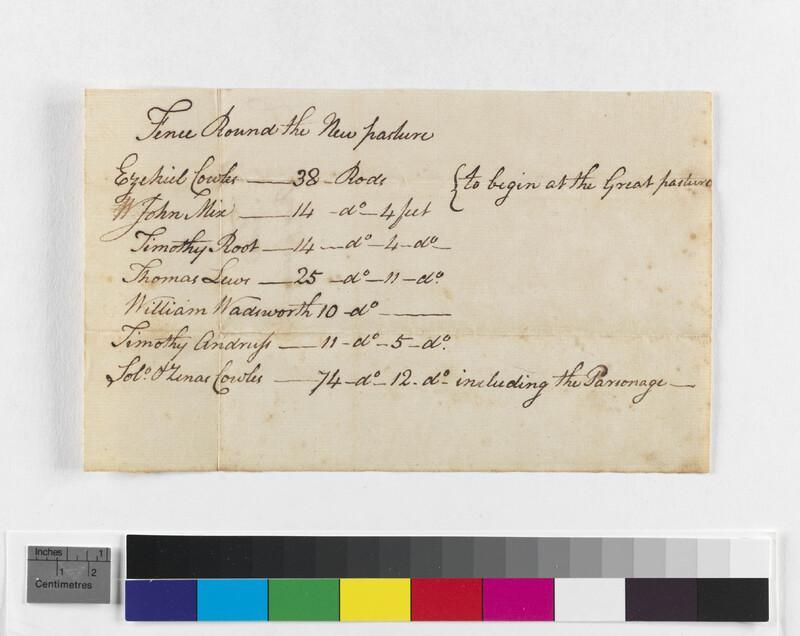 Fence Round the New pasture
Ezekiel Cowles — 38 — Rods { to begin at the Great pasture
John Mix — 14 - do - 4 feet
Timothy Root — 14 — do - 4 - do —
Thomas Lews — 25 - do - 11 - do.
William Wadsworth 10 do ———
Timothy Andruss — 11 - do - 5 - do.
Solo. & Zenas Cowles — 74 - do - 12 - do including the Parsonage —
Inches 1
1 2
Centimetres